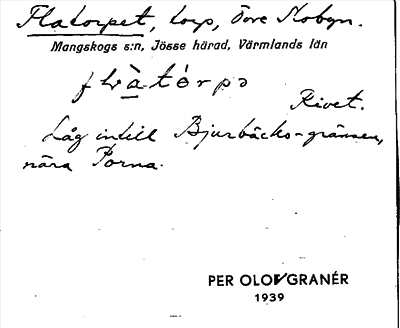 Flatorpet, torp, Övre Mobyn.
Mangskogs s:n, Jösse härad, Värmlands län
flàtórpə
Rivet.
Låg intill Bjurbäcks-gränsen,
nära Porna.
PER OLOF GRANÉR
1939